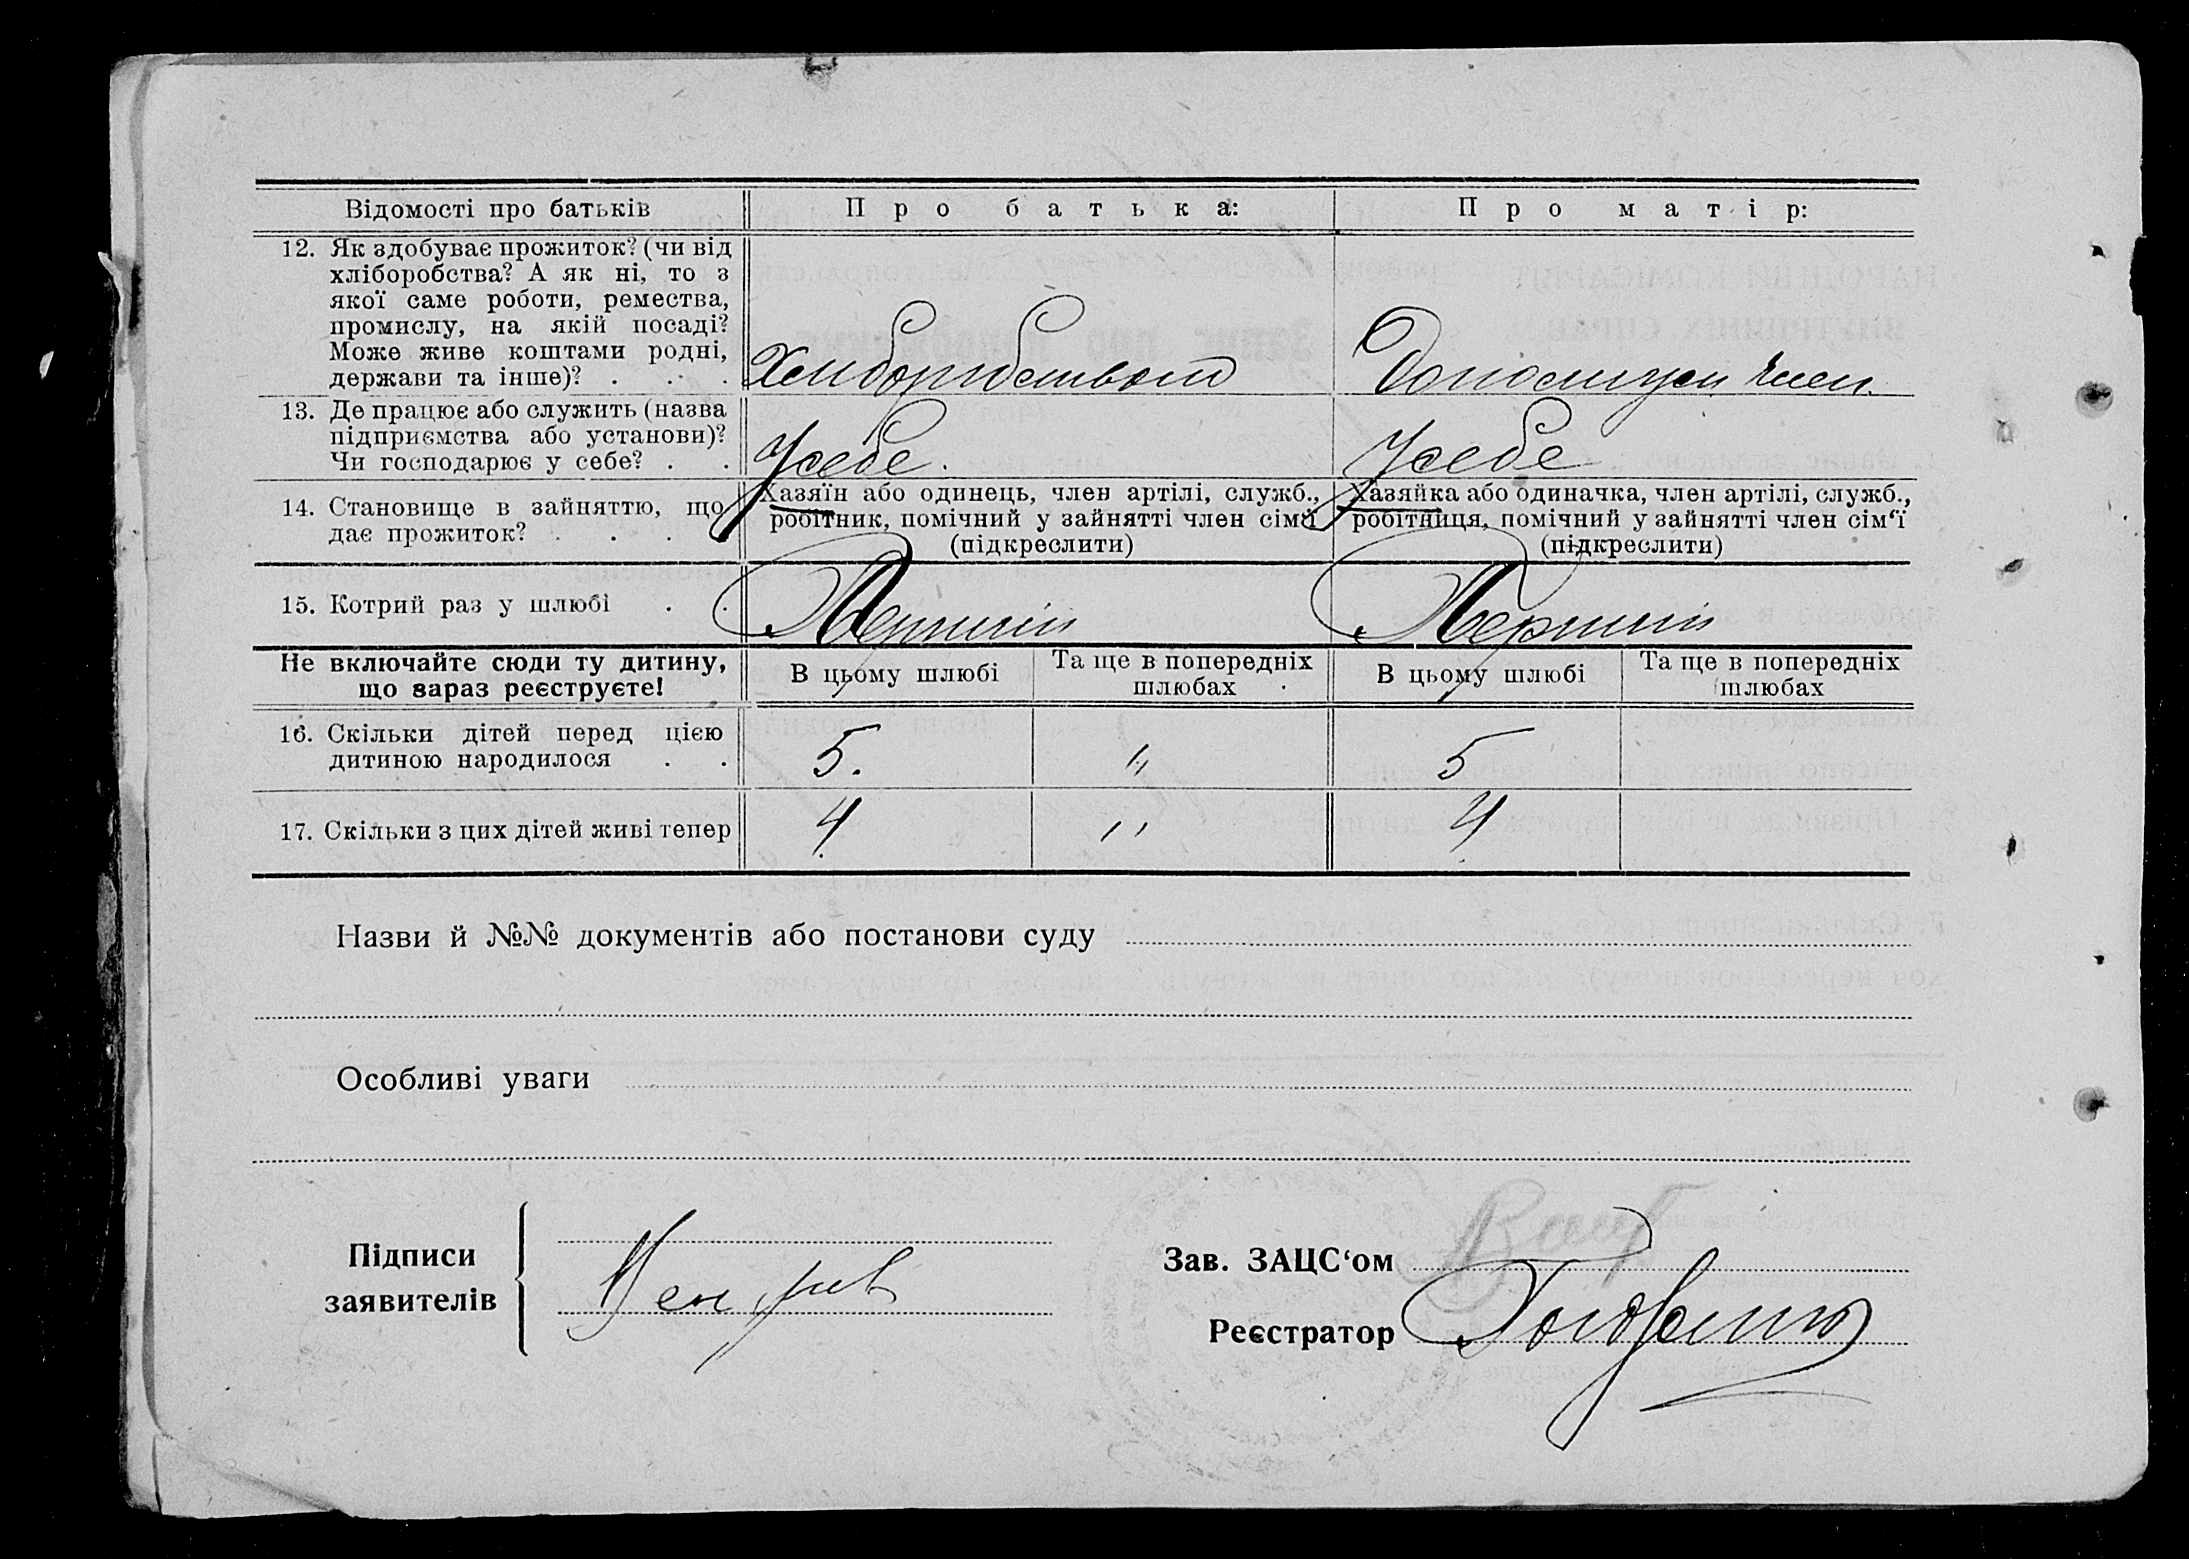 Відомості про батьків
Про батька:
Про матір:
12. Як здобуває прожиток? (чи від
хліборобства? А як ні, то з
якої саме роботи, ремества,
промислу, на якій посаді?
Може живе коштами родні,
держави та інше)? . . .
Хліборобством
Допомагуєм член
13. Де працює або служить (назва
підприємства або установи)?
Чи господарює у себе? . .
У себе.
У себе
14. Становище в зайняттю, що
дає прожиток? . . .
Хазяїн або одинець, член артілі, служб.,
робітник, помічний у зайнятті член сім'ї
(підкреслити)
Хазяйка або одиначка, член артілі, служб.,
робітниця, помічний у зайнятті член сім'ї
(підкреслити)
15. Котрий раз у шлюбі . .
Перший
Перший
Не включайте сюди ту дитину,
що зараз реєструєте!
В цьому шлюбі
Та ще в попередніх
шлюбах
В цьому шлюбі
Та ще в попередніх
шлюбах
16. Скільки дітей перед цією
дитиною народилося . .
5.
"
5
17. Скільки з цих дітей живі тепер
4
"
4
Назви й №№ документів або постанови суду
Особливі уваги
Підписи
заявителів
Зав. ЗАЦС‘ом
Реєстратор